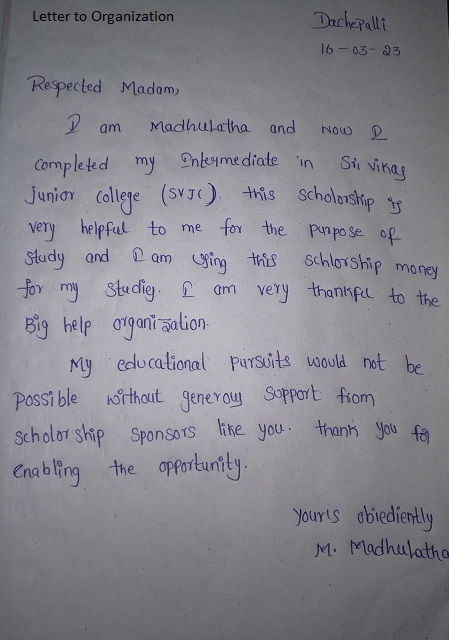 Letter to Organization
Dachepalli
16-03-23
Respected Madam,
I am Madhulatha and now I
completed my Intermediate in Sri vikas
junior college (SVJC). this scholorship is
very helpful to me for the purpose of
study and I am using this schlorship money
for my studies. I am very thankful to the
Big help organization.
My educational pursuits would not be
possible without generous support from
scholor ship sponsors like you. thank you for
enabling the opportunity.
your's obiediently
M. Madhulatha